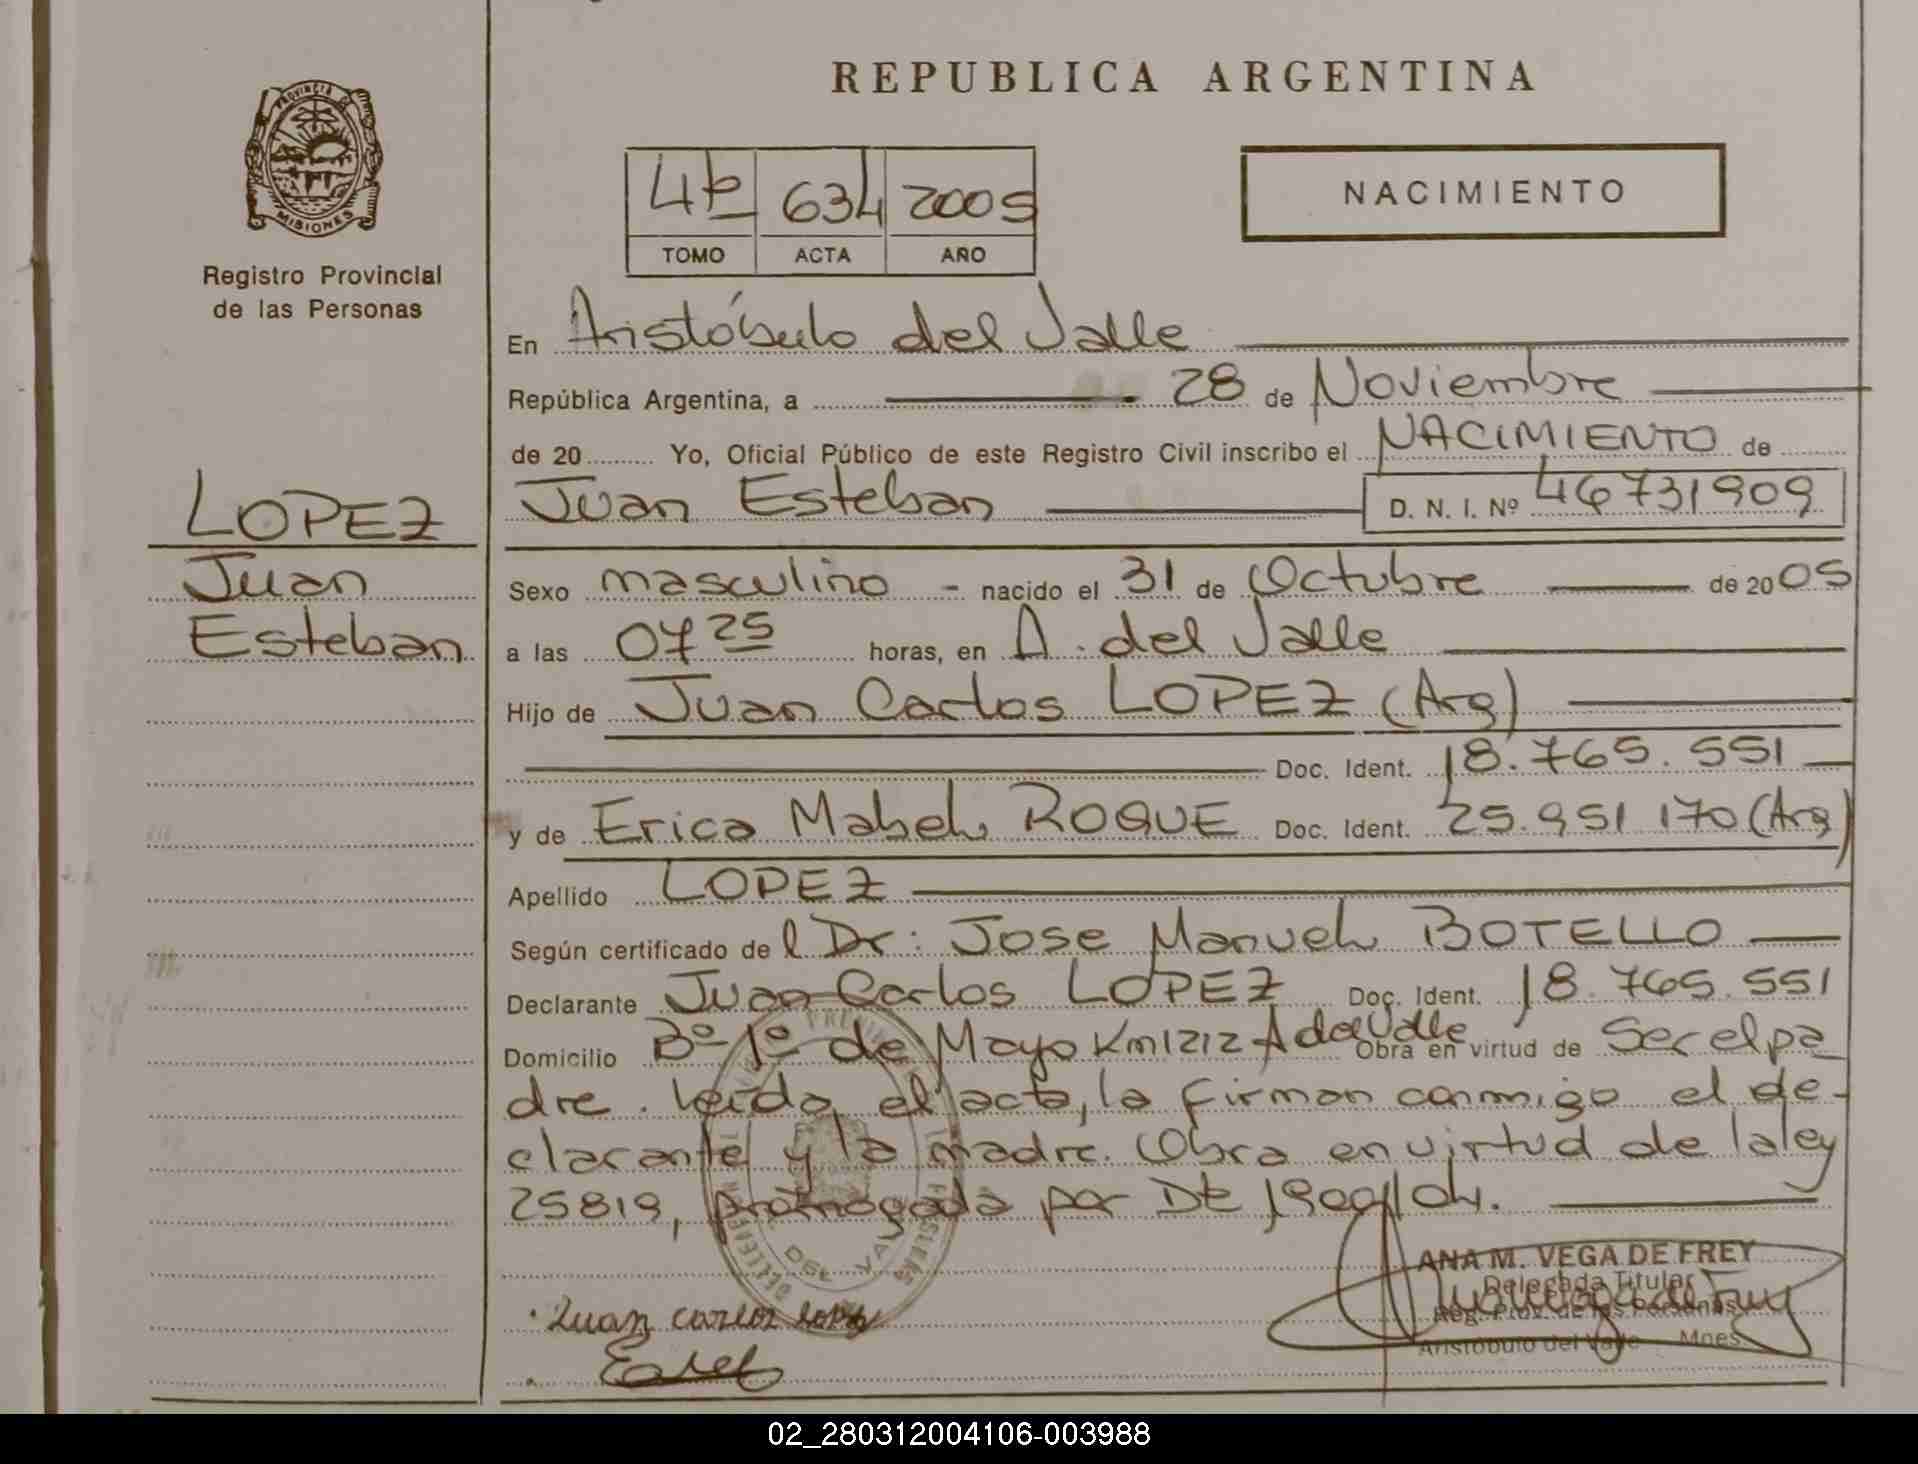 REPUBLICA ARGENTINA
PROVINCIA D
MISIONES
Registro Provincial
de las Personas
4b 634 2005
TOMO ACTA AÑO
NACIMIENTO
En Aristóbulo del Valle
República Argentina, a 28 de Noviembre
de 20 Yo, Oficial Público de este Registro Civil inscribo el NACIMIENTO de
Juan Esteban D. N. I. Nº 46731909
LOPEZ
Juan
Esteban
Sexo masculino - nacido el 31 de Octubre de 2005
a las 07 25 horas, en A. del Valle
Hijo de Juan Carlos LOPEZ (Arg)
Doc. Ident. 18.765.551
y de Erica Mabel ROQUE Doc. Ident. 25.951 170 (Arg)
Apellido LOPEZ
Según certificado de l Dr: Jose Manuel BOTELLO
Declarante Juan Carlos LOPEZ Doc. Ident. 18.765.551
Domicilio Bº 1º de Mayo Km 1212 A del Valle Obra en virtud de Ser el pa
dre. Leída el acta, la firman conmigo el de-
clarante y la madre. Obra en virtud de la ley
25819, prorrogada por Dt 1900/04.
ANA M. VEGA DE FREY
Delegada Titular
Reg. Prov. de las Personas
Aristóbulo del Valle Mnes
Juan carlos lopez
02_280312004106-003988